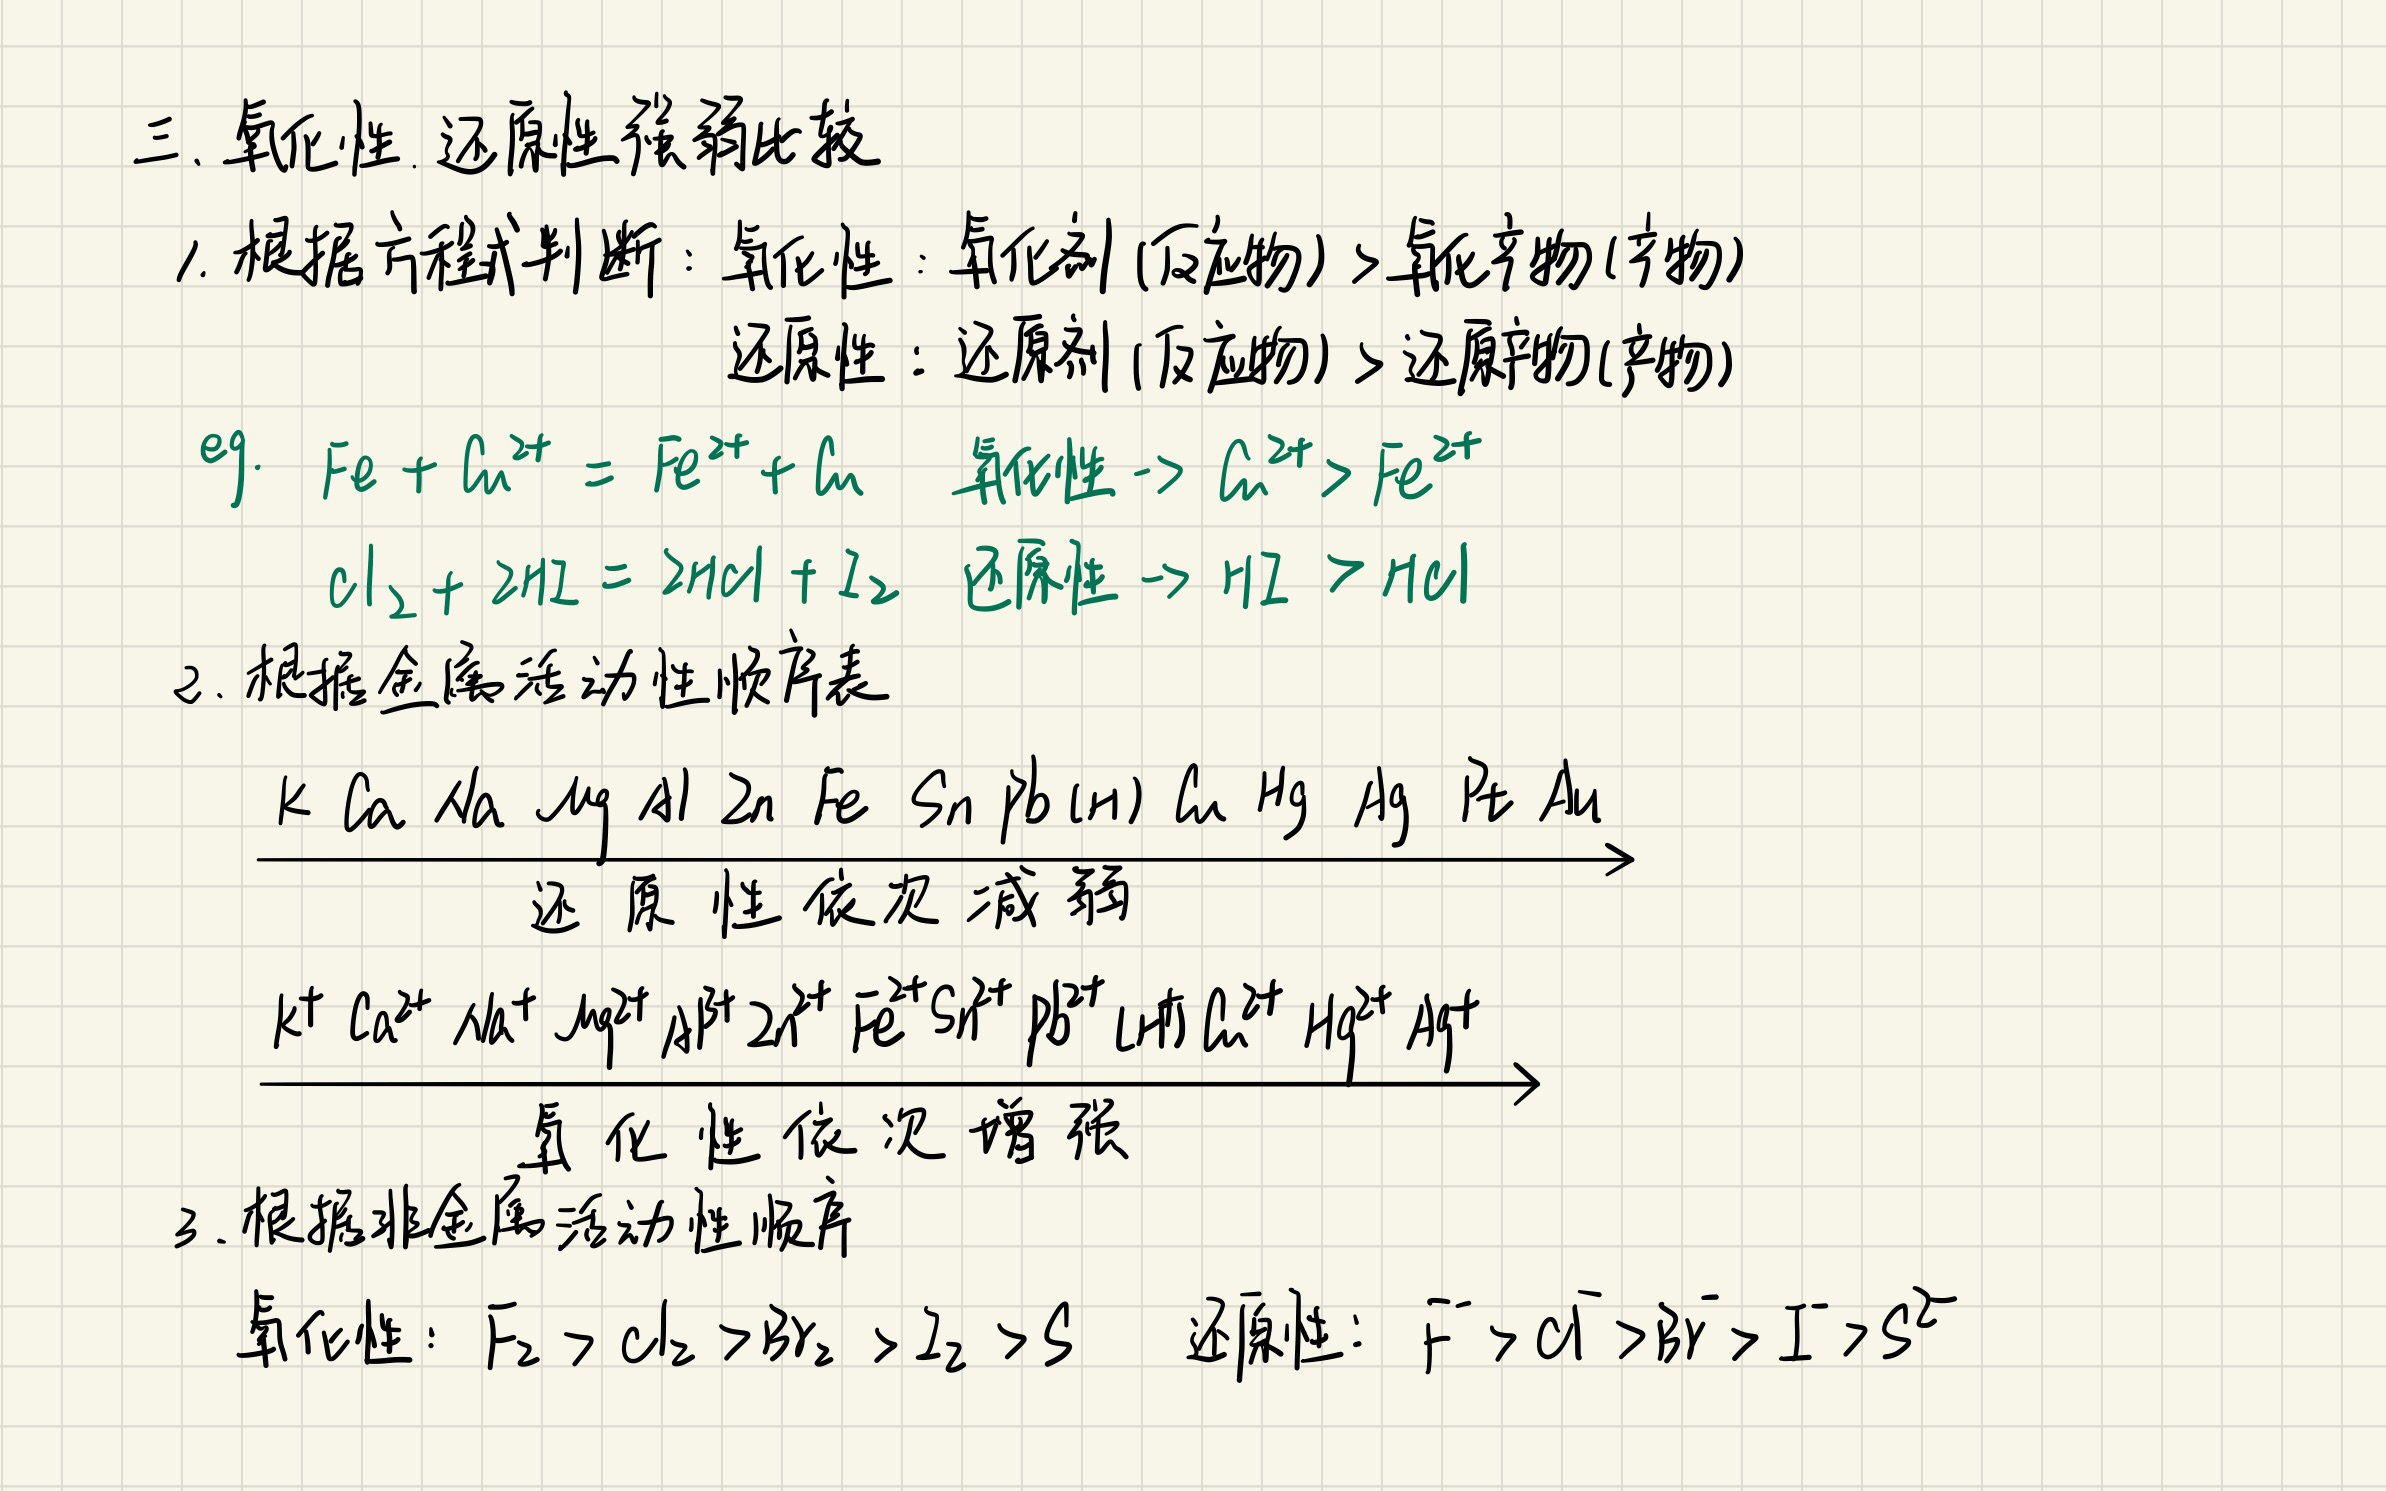 三、氧化性.还原性强弱比较
1. 根据方程式判断：氧化性：氧化剂(反应物) > 氧化产物(产物)
还原性：还原剂(反应物) > 还原产物(产物)
eg. Fe + Cu²⁺ = Fe²⁺ + Cu 氧化性 -> Cu²⁺ > Fe²⁺
Cl₂ + 2HI = 2HCl + I₂ 还原性 -> HI > HCl
2. 根据金属活动性顺序表
K Ca Na Mg Al Zn Fe Sn Pb (H) Cu Hg Ag Pt Au
还原性依次减弱
K⁺ Ca²⁺ Na⁺ Mg²⁺ Al³⁺ Zn²⁺ Fe²⁺ Sn²⁺ Pb²⁺ (H⁺) Cu²⁺ Hg²⁺ Ag⁺
氧化性依次增强
3. 根据非金属活动性顺序
氧化性：F₂ > Cl₂ > Br₂ > I₂ > S 还原性：F⁻ > Cl⁻ > Br⁻ > I⁻ > S²⁻